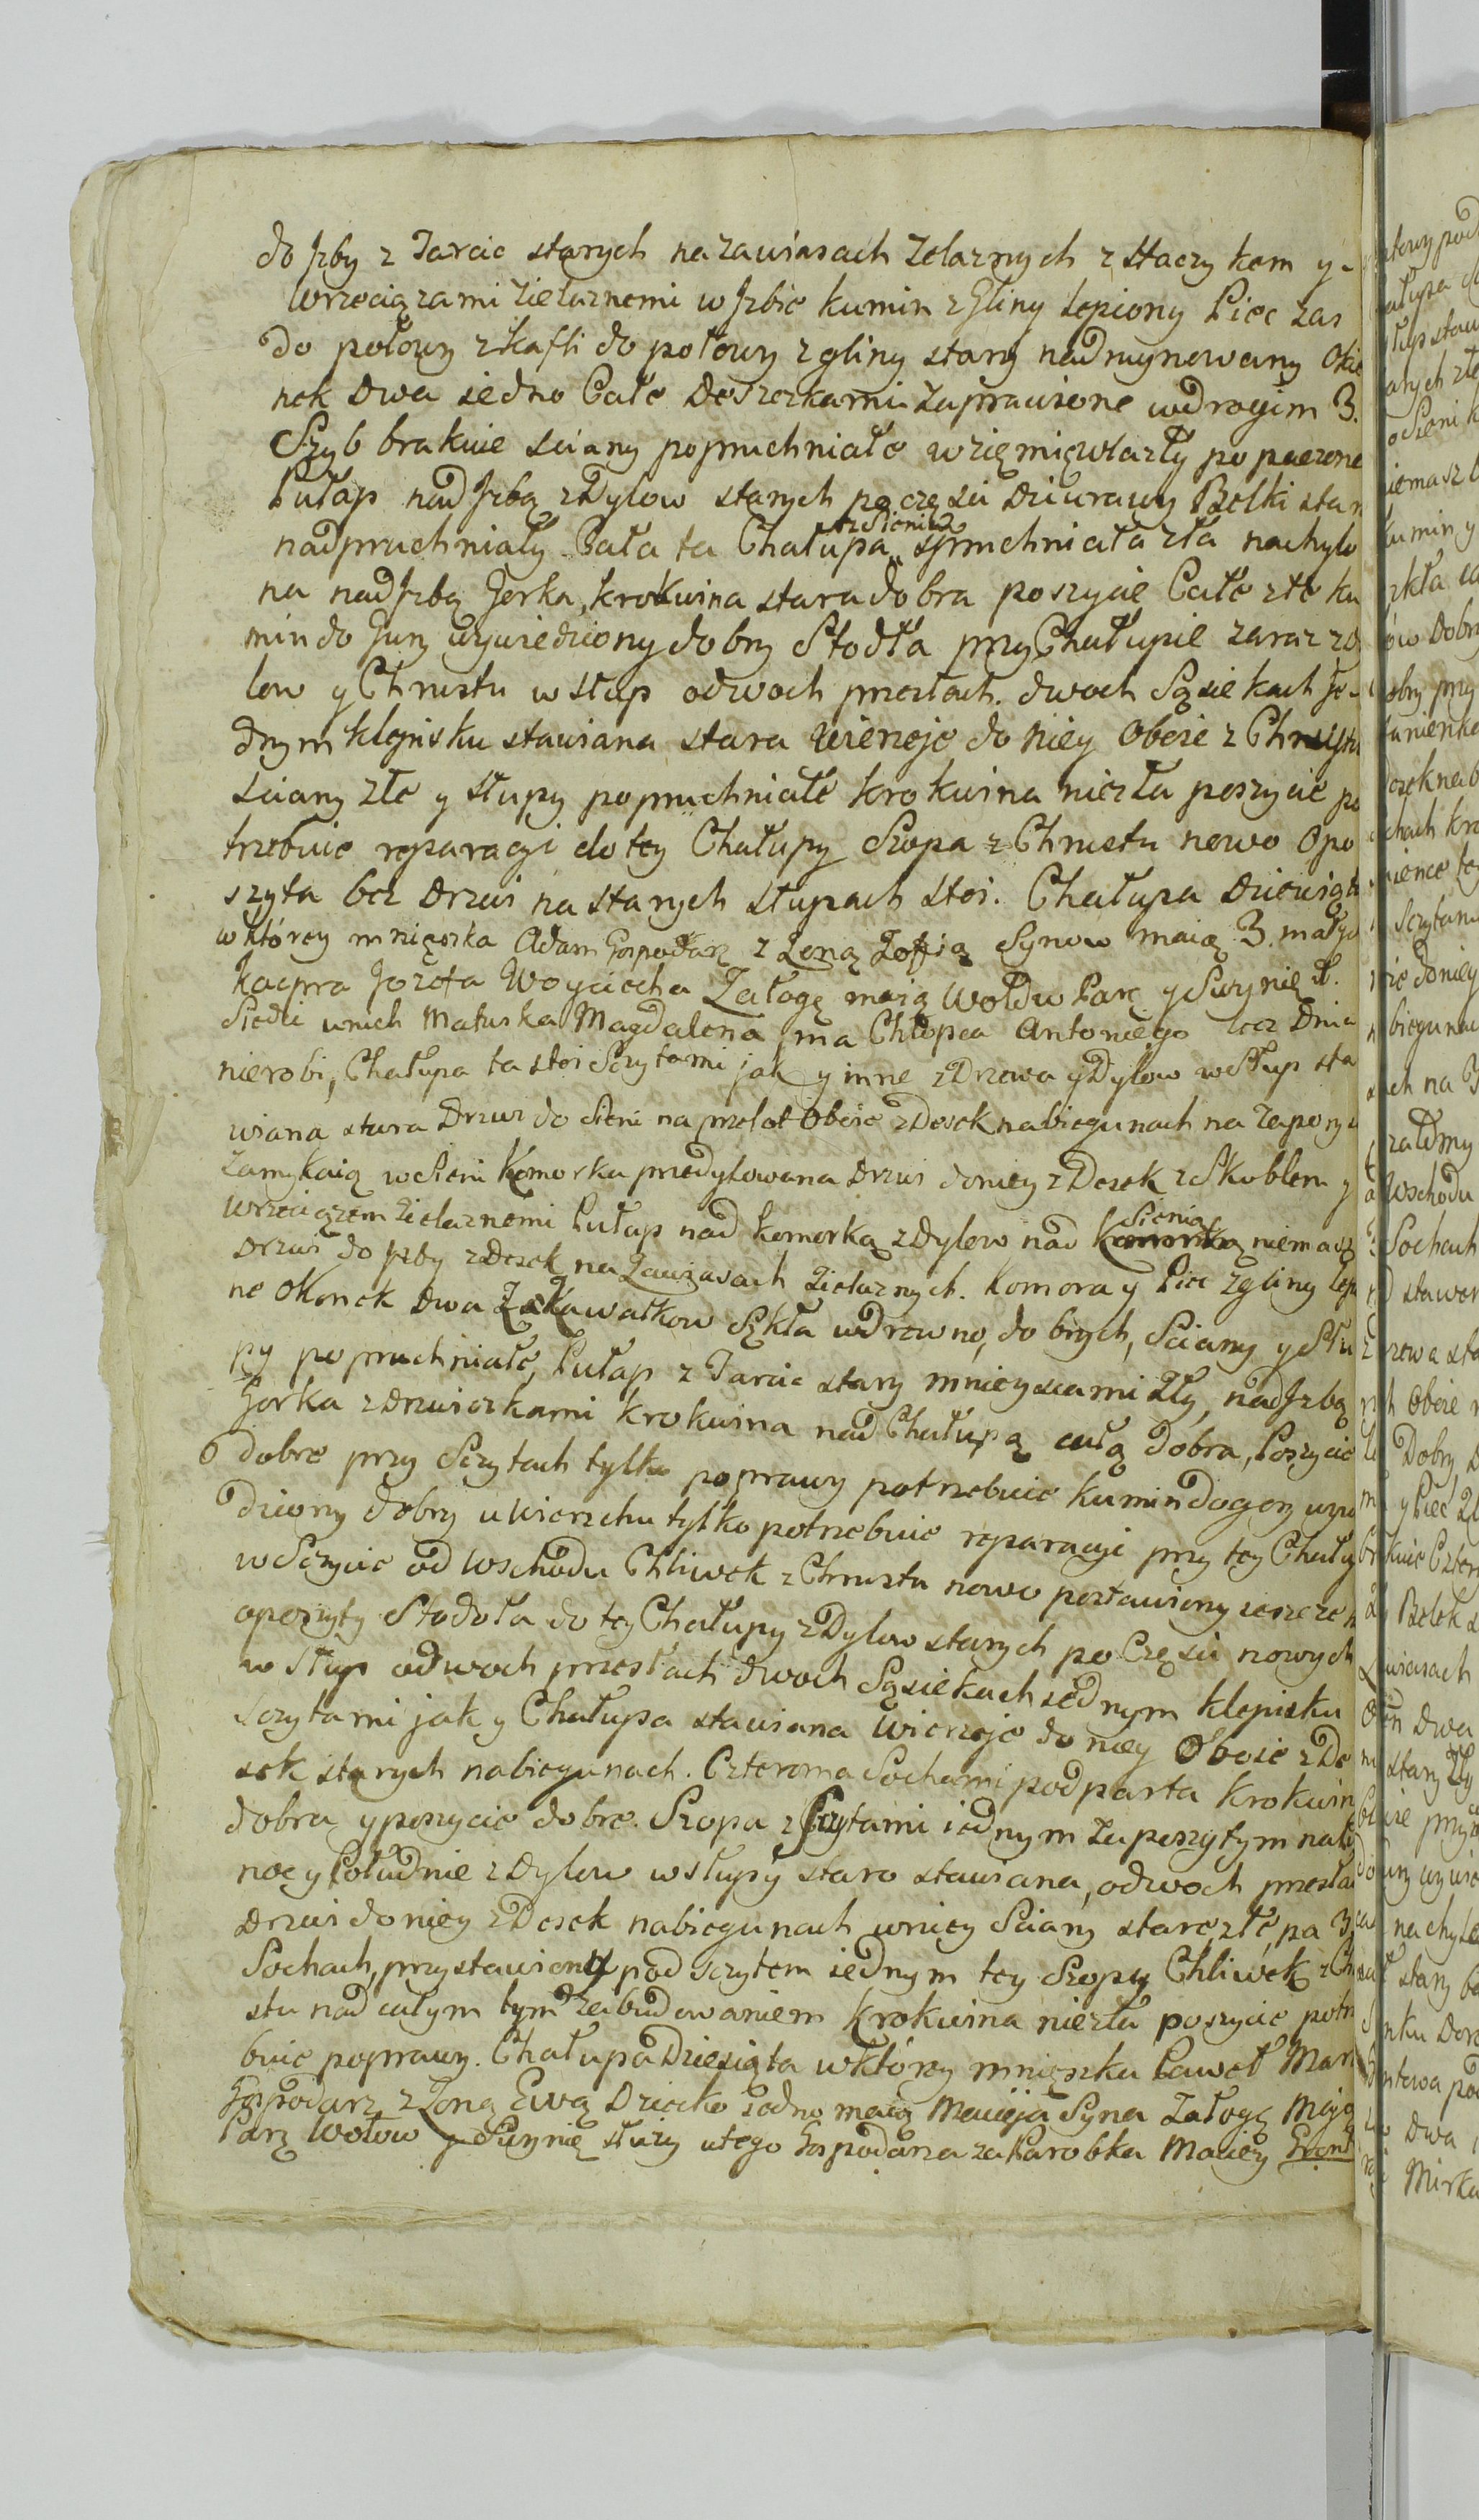 do Jzby z Tarcic starych na zawiasach zelaznych z staczykem y
wrzeciązami zielaznemi w Jzbie kumin z Gliny lepiony Piec zas
do połowy z kafli do połowy z gliny stary nadruynowany Okie
nek dwa iedno Całe Deszczkami zaprawione w drogim 3.
Szyb brakuie sciany popruchniałe w zięmię wlazły popaczone
Pułap nad Jzbą z Dylow starych po części dziurawy Belki star
nadpruchniały Cała ta Chałupa z Sienią spruchniała zła nachylo
na nad Jzbą Gorka, krokwina stara dobra poszycie Całe złe ku
min do Gury wywiedziony dobry Stodła przy Chałupie zaraz z Dy
low y Chrustu w słup o dwoch przesłach. dwoch Sąsiekach Je-
dnym klepisku stawiana stara Wierzeje do niey Oboie z Chrustu
sciany złe y słupy popruchniałe krokwina niezła poszycie po
trzebuie reparacyi do tey Chałupy Szopa z Chrustu nowo Opo
szyta bez Drzwi na starych słupach stoi. Chałupa Dziewiąta
w ktorey mnięszka Adam Gospodarz z Zoną Zofią Synow maią 3. małych
Kacpra Jozefa Woyciecha Załogę maią Wołów Parę y Swynię d.
Siedzi u nich Matuska Magdalena, ma Chłopca Antoniego lecz Dnia
nierobi, Chałupa ta stoi Sczytami jak y inne z Drzewa y Dylow w Słup sta
wiana stara Drzwi do Sieni na przelot Oboie z Desek na biegunach na zapory
zamykaią w Sieni Komorka przedylowana Drzwi do niey z Desek z Skoblem y
wrzeciązem zielaznemi Pułap nad komorką z Dylow nad Sienią niemasz
Drzwi do Jzby z Desek na zawiasach zielaznych. Komora y Piec z gliny lepio
ne Okonek dwa z kawałkow Szkła w drewno, dobrych, Sciany y Słu
py popruchniałe, Pułap z Tarcic stary mnieyscami zły, nad Jzbą
Gorka z Drzwiczkami krokwina nad Chałupą całą dobra, Poszycie
dobre przy Sczytach tylko poprawy potrzebuie kumin do gory wywie
dziony dobry u Wierzchu tylko potrzebuie reparacyi przy tey Chałup
w Sczycie od Wschodu Chliwek z Chrustu nowo postawiony ieszcze n
oposzyty Stodoła do tey Chałupy z Dylow starych po Części nowych
w Słup o dwoch przesłach dwoch Sąsiekach iednym klepisku
Sczytami jak y Chałupa stawiana Wierzeje do niey Oboie z De
sek starych na biegunach. Czteroma Sochami podparta Krokwin
dobra y poszycie dobre. Szopa z Sczytami iednym zaposzytym na Pół
noc y Południe z Dylow w słupy staro stawiana, o dwoch przesła
Drzwi do niey z Desek na biegunach u niey Sciany stare złe, na 3
Sochach, przystawiony pod sczytem iednym tey Szopy Chliwek z Ch
stu nad całym tym zabudowaniem krokwina niezła poszycie potrz
buie poprawy. Chałupa Dziesiąta w ktorey mnięszka Paweł Mar
Gospodarz z Zoną Ewą Dziecko iedno maią Macieja Syna Załogę Mają
Parę Wołow y Swynię służy u tego Gospodarza za Parobka Maciey